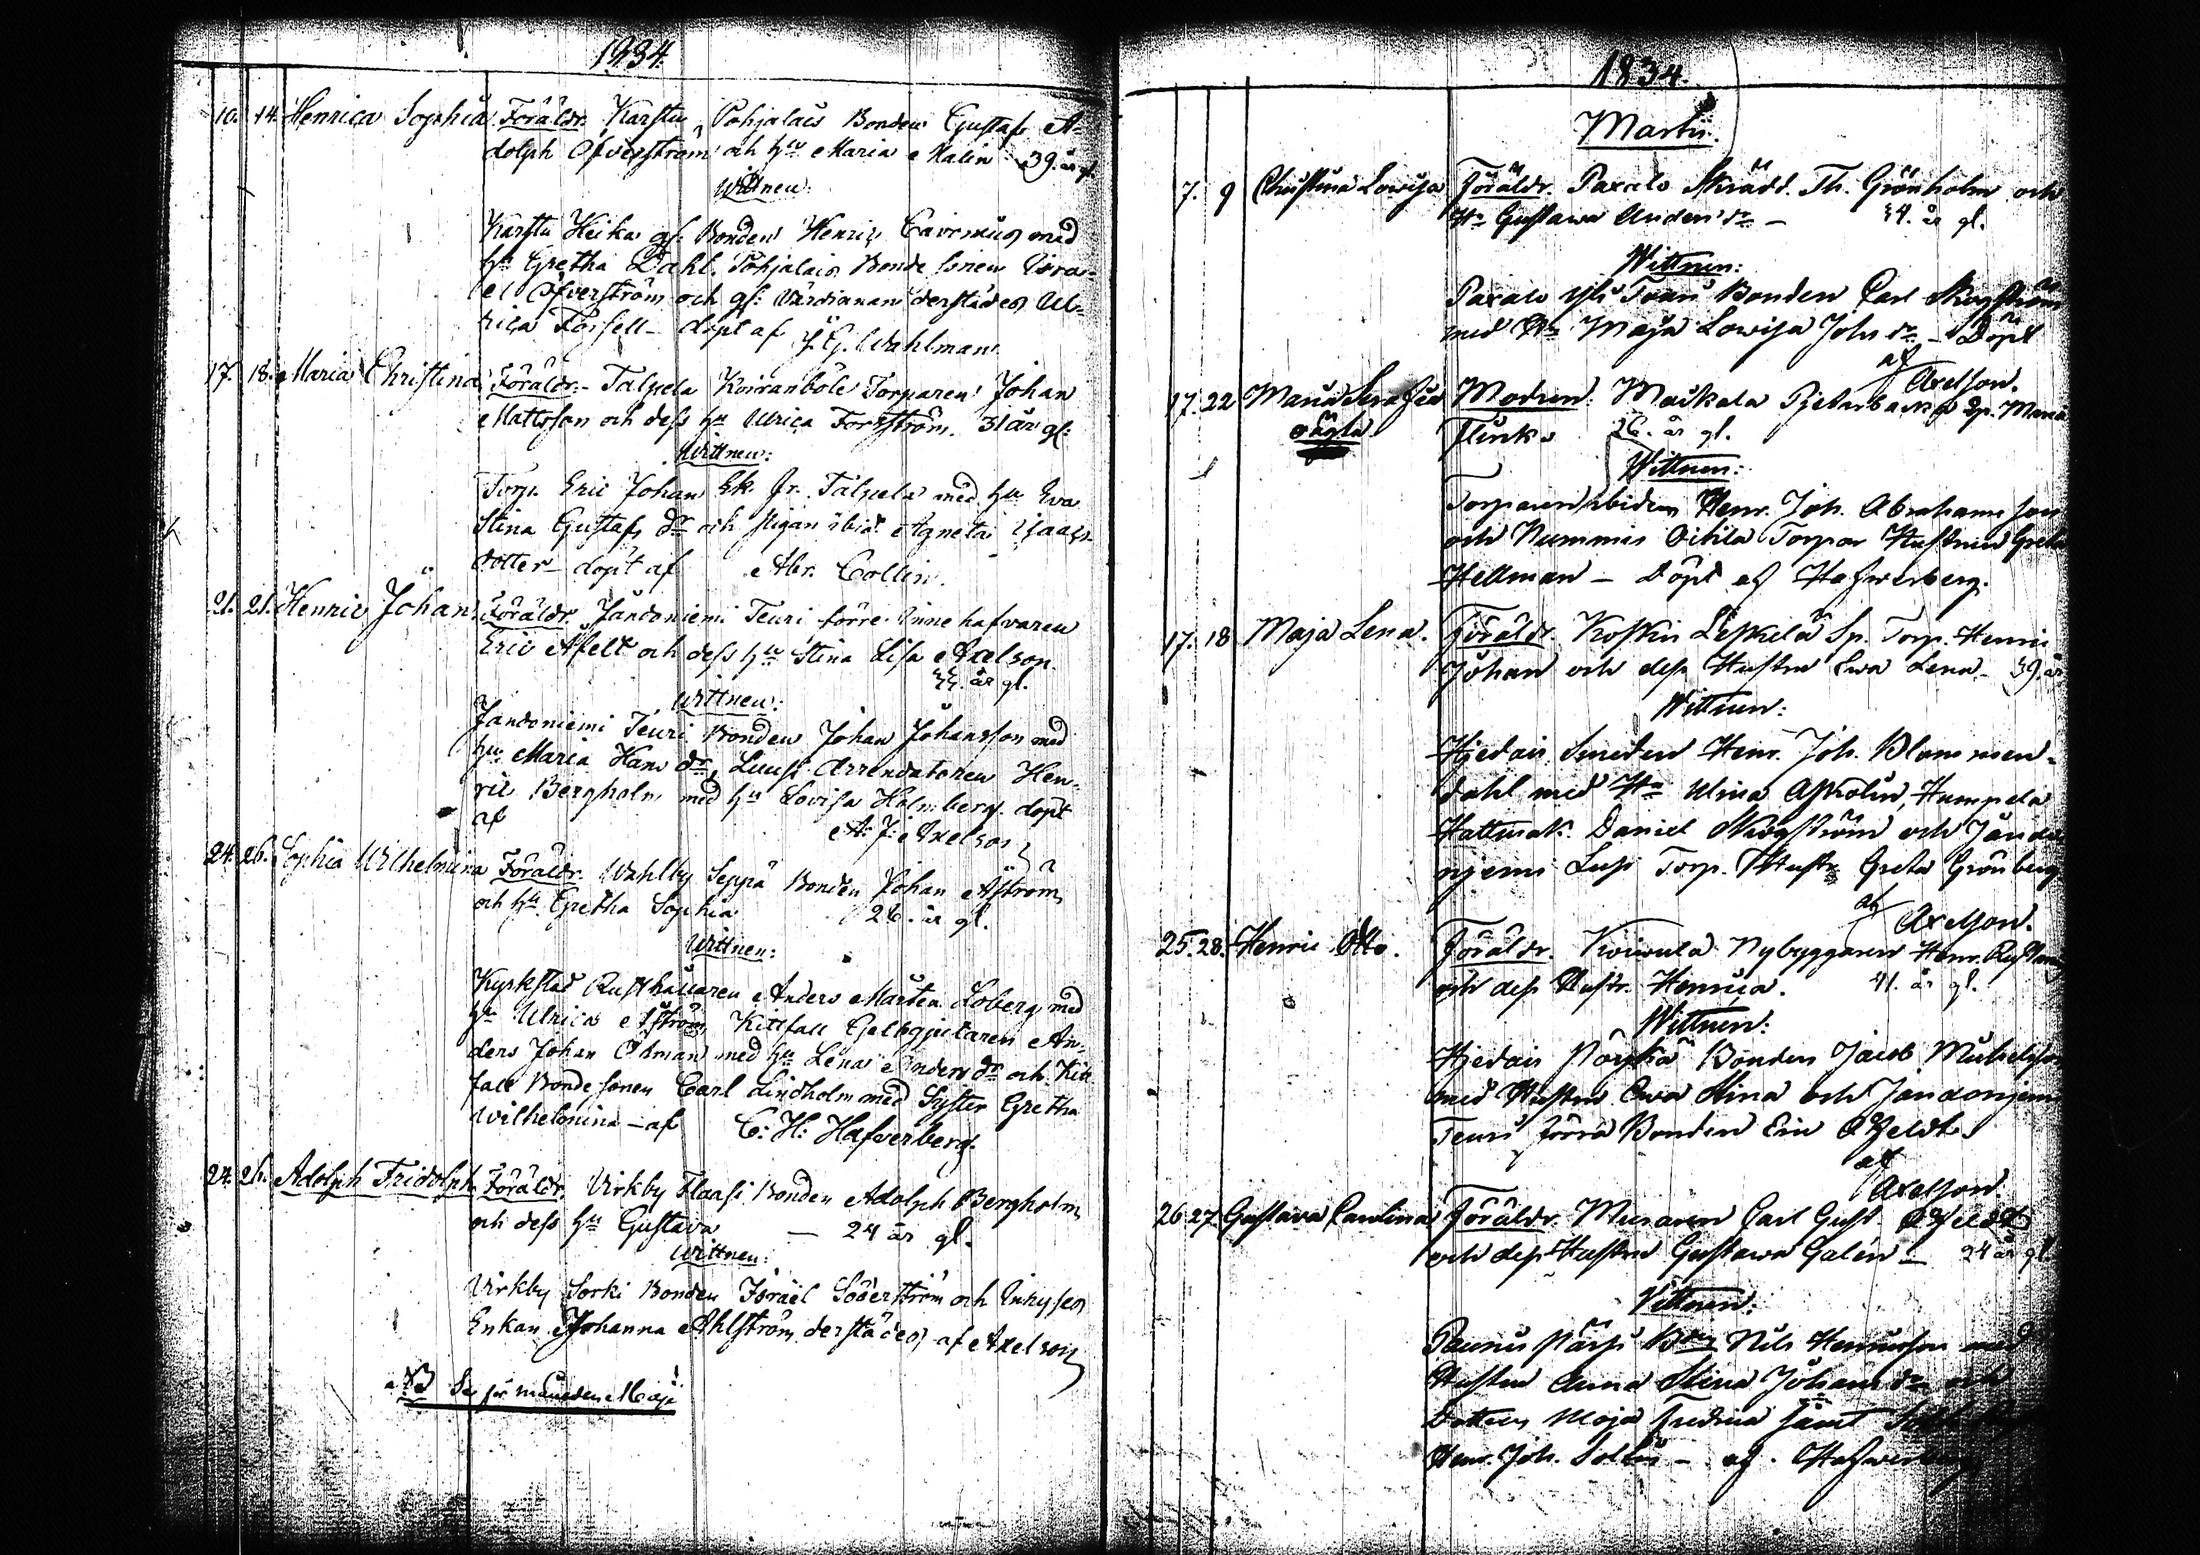 1834.
10. 14. Henrica Sophia. Föräldr. Karstu Pohjalais Bonden Gustaf A-
dolph Öfverström och hu Maria Malin 39. år gl.
Wittnen:
Karstu Heika gf. Bonden Henric Cavenius med
hu Gretha Dahl. Pohjalais Bonde sonen Isra-
el Öfverström och gf: Värdinnan derstädes Ul-
rica Forsell - döpt af J. G. Wahlman.
17. 18. Maria Christina Föräldr. Talpela Koiranböle Torparen Johan
Mattsson och dess hu Ulrica Forsström. 31 år gl:
Wittnen:
Torp. Eric Johan Ek fr. Talpela med hu Eva
Stina Gustafs dr och pigan ibid. Agneta Isaacs-
dotter - döpt af Abr. Collin.
21. 21. Henric Johan Föräldr. Jandoniemi Teuri förre Innehafvaren
Eric Afelt och dess hu Stina Lisa Axelson.
44. år gl.
Wittnen:
Jandoniemi Teuri Bonden Johan Johansson med
hu Maria Hans dr, Luusi Arrendatoren Hen-
ric Bergholm med hu Lovisa Holmberg. döpt
af A: J: Axelson
24. 26. Sophia Wilhelmina Föräldr. Wahlby Seppä Bonden Johan Åström
och hu Gretha Sophia 26. år gl.
Wittnen:
Kyrkstad Rusthållaren Anders Mårten Loberg med
hu Ulrica Åström Kittfall Gelbgjutaren An-
ders Johan Ödman med hu Lena Anders dr och Kitt-
fall Bonde sonen Carl Lindholm med Syster Gretha
Wilhelmina - af C: H: Hafverberg.
24. 26. Adolph Fridolph Föräldr. Virkby Flaasi Bonden Adolph Bergholm,
och dess hu Gustava - 24 år gl.
Wittnen:
Virkby Sorki Bonden Israel Söderström och Inhyses
Enkan Johanna Ahlström derstädes af Axelson
NB Se för månaden Maji!
1834.
Martii.
7. 9 Christina Lovisa Föräldr. Paxalo Skrädd. Th. Grönholm och
Hu Gustava Anders dr - 44. år gl.
Wittnen:
Paxalo Yli Tvari Bonden Carl Skogström
med Hu Maja Lovisa Johs dr - Döpt
af Axelson.
17. 22 Maria Serafia Modren. Maikala Pjetarbacka Sp. Maria
oägta Flink 26. år gl.
Wittnen:
Torparen ibidem Henr. Joh. Abrahamsson
och Nummis Oitila Torpar Hustrun Greta
Hellman - Döpt af Hafverberg.
17. 18 Maja Lena. Föräldr. Koskis Leskelä Sp. Torp. Henric
Johan och dess Hustru Ewa Lena - 39. år
Wittnen:
Hjedais Smeden Henr. Joh. Blommen-
dahl med Hu Ulrica Askolin, Humpela
Hattmak. Daniel Skogström och Jando-
njemi Lusi Torp. Hustr Greta Grönberg
af Axelson.
25. 28. Henric Otto. Föräldr. Koivula Nybyggaren Henr.
och dess Hustr. Henrica. 41. år gl.
Wittnen:
Hjedais Pörkä Bonden Jacob Mickelsson
med Hustru Ewa Stina och Jandonjemi
Teuri förra Bonden Eric Afeldt
af
Axelson.
26 27 Gustava Paulina Föräldr. Muraren Carl Gust. Afeldt
och dess Hustru Gustawa Galén - 24 år gl.
Wittnen:
Paunis Nils Henricsson med
Hustru Anna Stina Johans dr och
Dottren Maja Fredrica samt
Henr. Joh. - af. Hafverberg